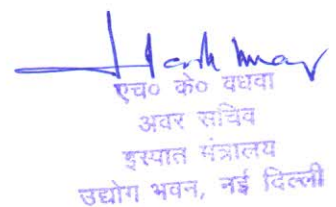 एच० के० वधवा
अवर सचिव
इस्पात मंत्रालय
उद्योग भवन, नई दिल्ली